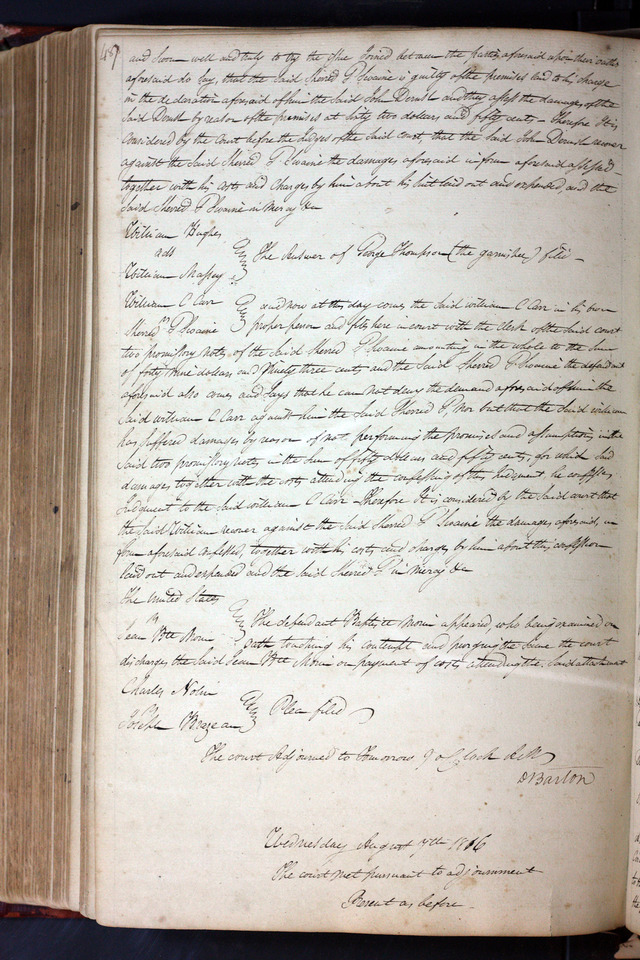 487
and sworn well and truly to try the issue Joined between the parties aforesaid upon their oaths
aforesaid do say, that the said Sherred P Swaine is guilty of the premises laid to his charge
in the declaration aforesaid of him the said John Doush and they assess the damages of the
said Doush by reason of the premises at sixty two dollars and fifty cents – Therefore It is
Considered by the Court before the Judges of the said court, that the said John Doush recover
against the said Sherred P Swaine the damages aforesaid in form aforesaid assessed
together with his costs and charges by him about his suit laid out and expended, and the
said Sherred P Swaine in mercy &c
William Hughes
ads
The Answer of George Thompson (the garnishee) filed –
William Massey
William C Carr
and now at this day comes the said William C Carr in his own
vs
Sherred P Swaine
proper person and files here in court with the Clerk of the said court
two promissory notes of the said Sherred P Swaine amounting in the whole to the sum
of forty nine dollars and Ninety three cents and the said Sherred P Swaine the defendant
aforesaid also comes and says that he can not deny the demand aforesaid of him the
said William C Carr against him the said Sherred P, Nor but that the said William
has suffered damages by reason of not performing the promises and assumptions in the
said two promissory notes in the sum of fifty dollars and fifty cents, for which said
damages together with the costs attending the confessing of this Judgment he confesses
Judgment to the said William C Carr Therefore It is considered by the said court that
the said William recover against the said Sherred P Swaine the damages aforesaid, in
form aforesaid confessed, together with his costs and charges by him about this confession
laid out and expended and the said Sherred P in mercy &c
The United States
vs
The defendant Baptiste Morin appeared, who being examined on
Jean Bte Morin
oath touching his contempt and purging the same the court
discharges the said Jean Bte Morin on payment of costs attending the said attachment
Charles Nolin
Plea filed
Joseph Brazeau
The court Adjourned to tomorrow 9 o Clock A M
D Barton
Wednesday August 7th 1816
The court met pursuant to adjournment
Present as before –